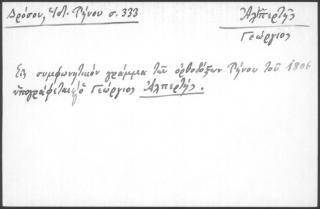 Δρόσου, Ἱστ. Τήνου σ. 333
Ἀλπερτῆς
Γεώργιος
Εἰς συμφωνητικὸν γράμμα τῶν ὀρθοδόξων Τήνου τοῦ 1806
ὑπογράφεται ὁ Γεώργιος Ἀλπερτῆς.